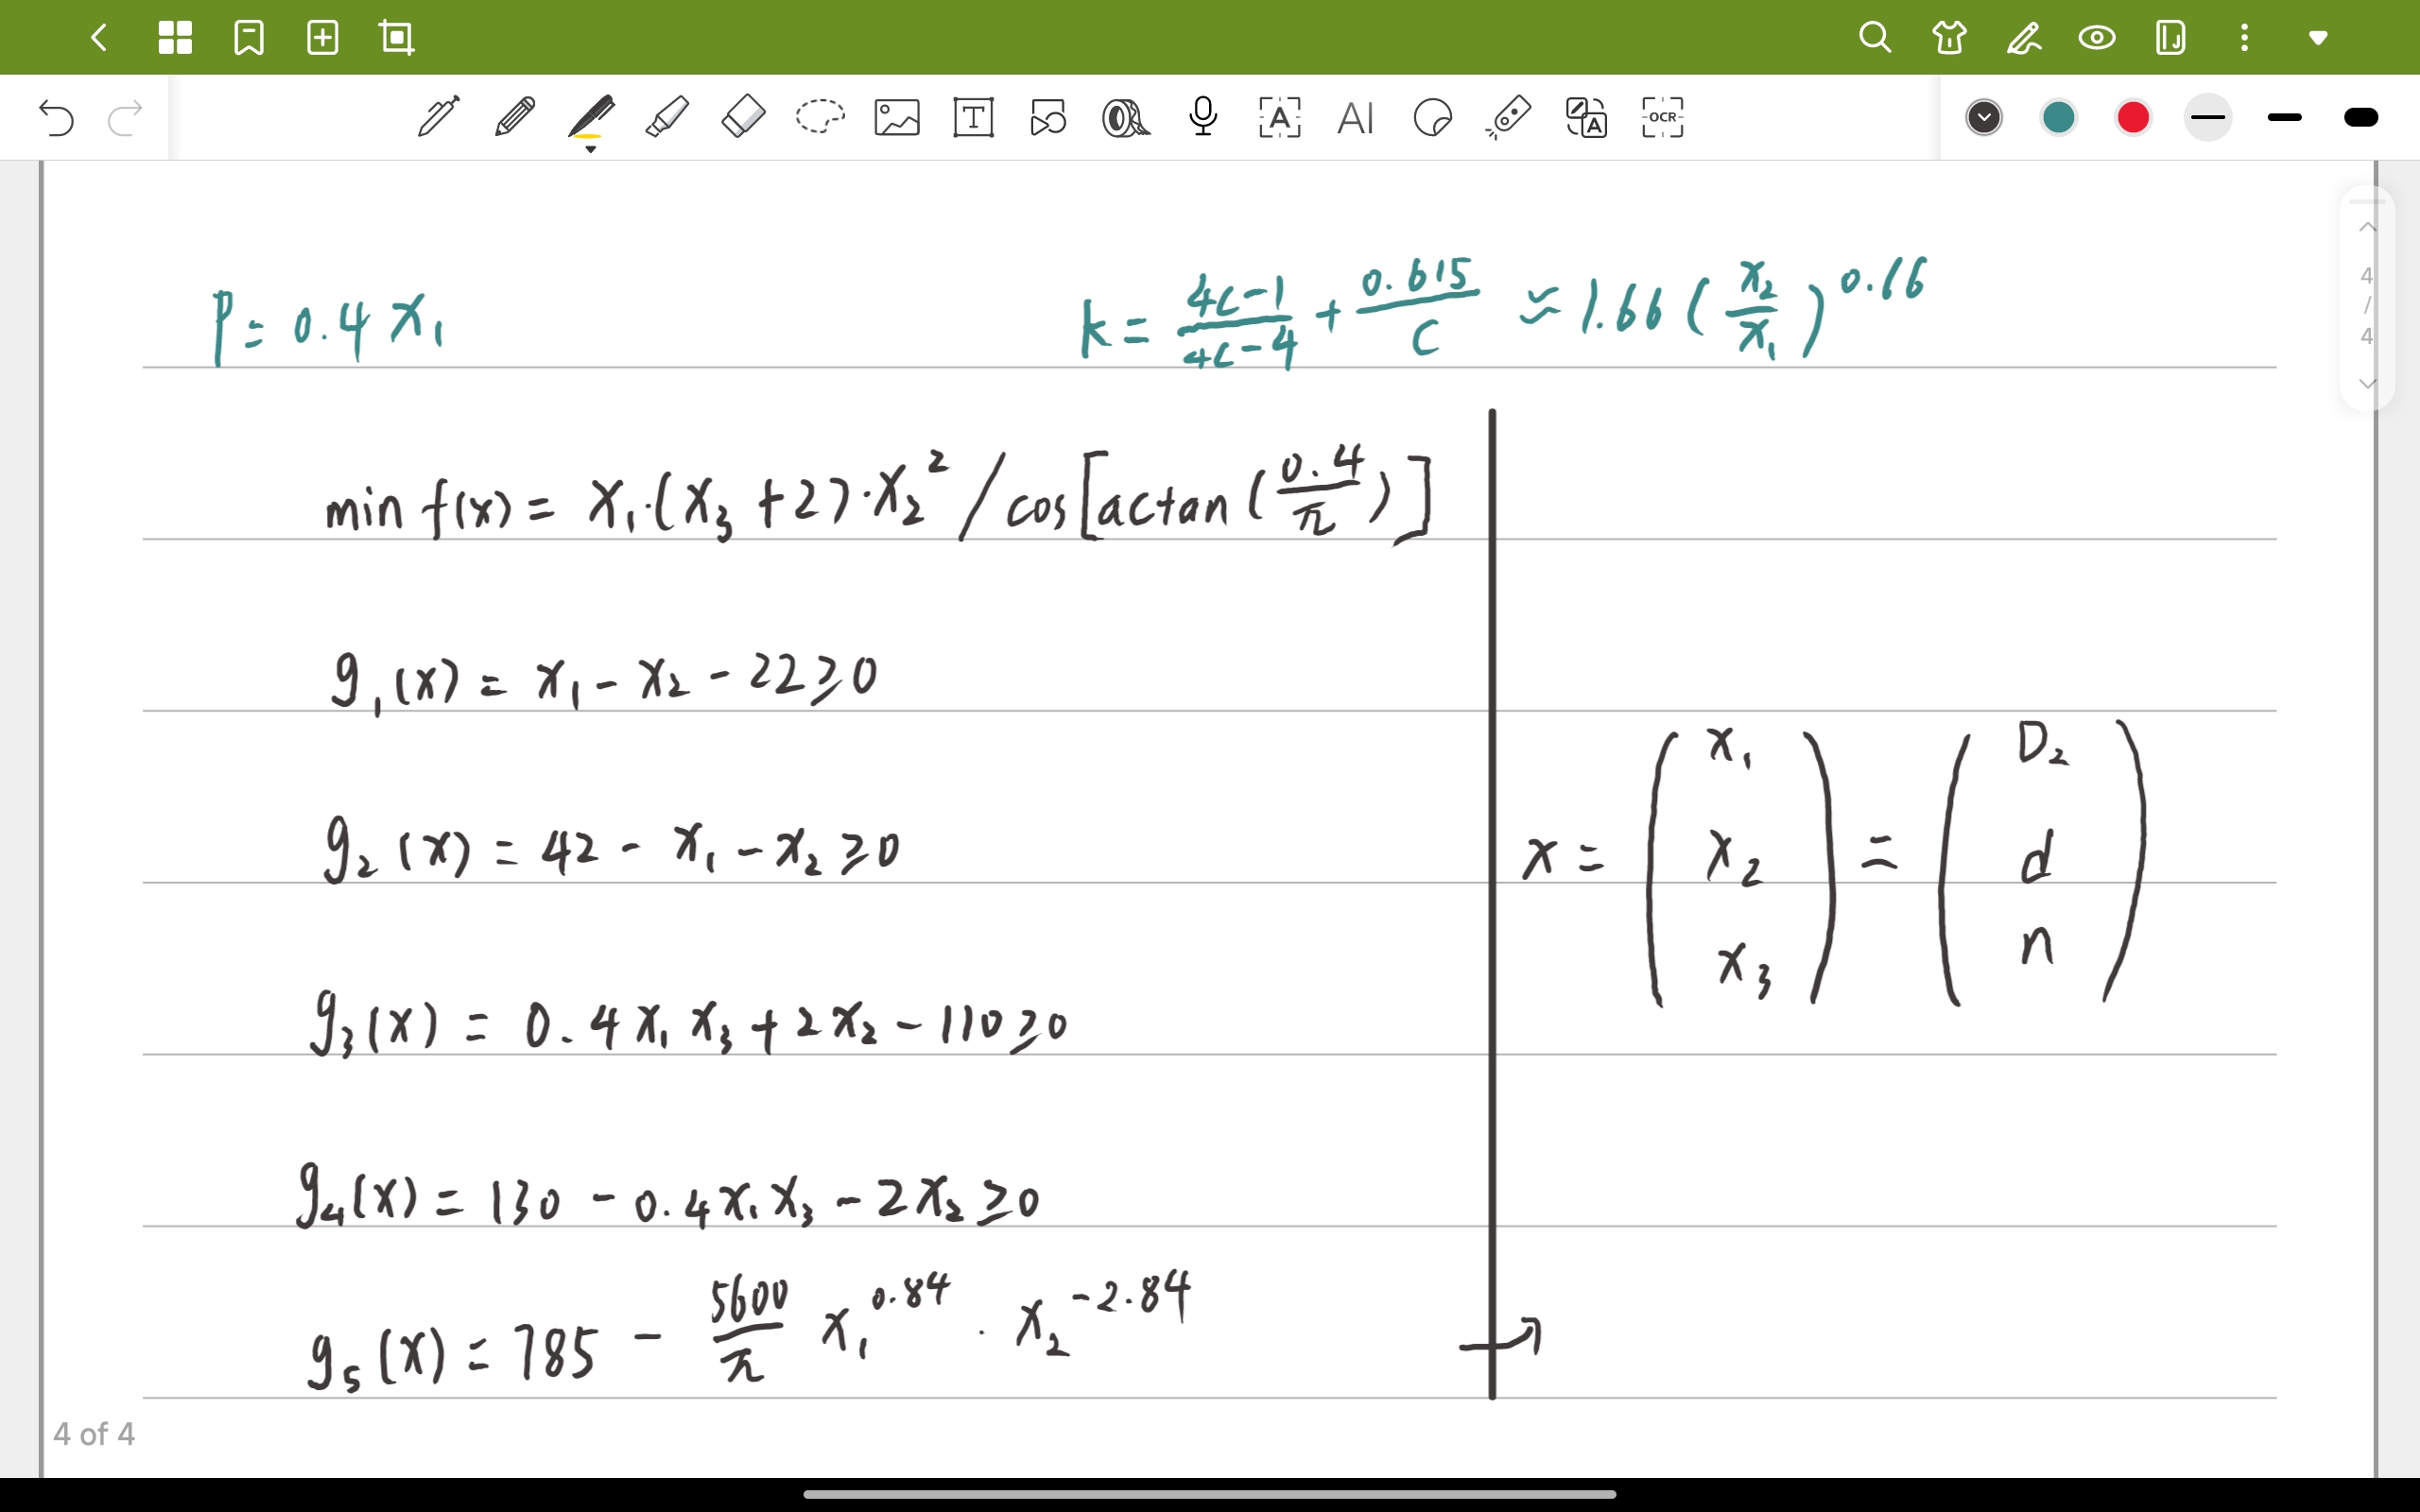 A T A OCR AI
P = 0.4 x₁
k = (4C-1)/(4C-4) + 0.615/C ≈ 1.66 (x₂/x₁)^0.16
min f(x) = x₁·(x₃+2)·x₂² / cos[actan(0.4/π)]
g₁(x) = x₁ - x₂ - 22 ≥ 0
g₂(x) = 42 - x₁ - x₂ ≥ 0
x = (x₁ x₂ x₃) = (D₂ d n)
g₃(x) = 0.4 x₁ x₃ + 2x₂ - 110 ≥ 0
g₄(x) = 130 - 0.4x₁x₃ - 2x₂ ≥ 0
g₅(x) = 785 - 5600/π x₁^0.84 · x₂^-2.84
4 / 4
4 of 4